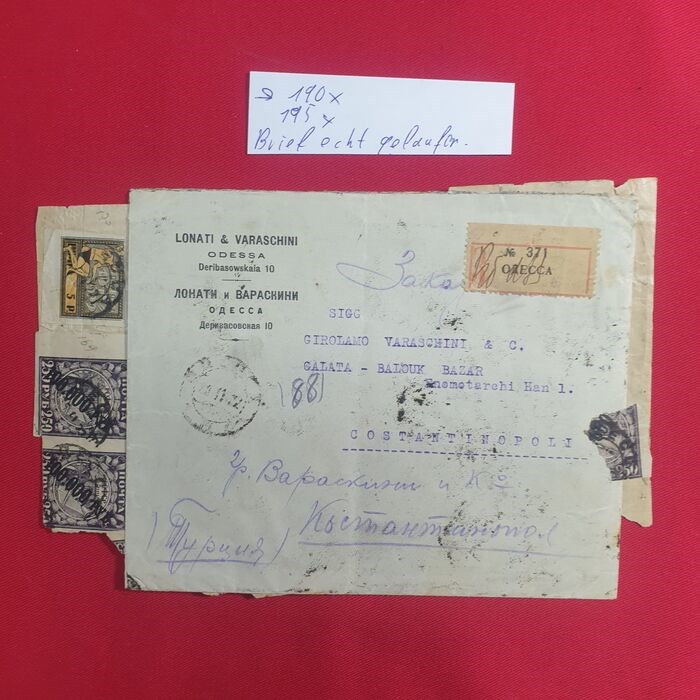 190x
195x
Brief echt gelaufen.
LONATI & VARASCHINI
ODESSA
Deribasowskaia 10
ЛОНАТИ и ВАРАСКИНИ
ОДЕССА
Дерибасовская 10
№ 371
ОДЕССА
Зака
SIGG
GIROLAMO VARASCHINI & C.
GALATA - BALOUK BAZAR
Enomotarchi Han 1.
(88)
COSTANTINOPOLI
гр. Вараскини и Кº
(Турция)
Къстантинопол
5 Р
250